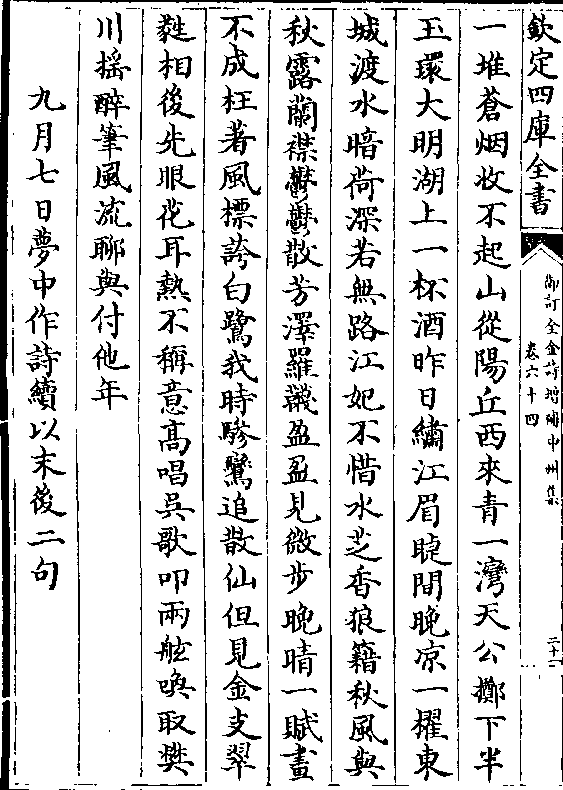 欽定四庫全書
御訂全金詩增補中州集
卷六十四
二十二
一堆蒼烟收不起山從陽丘西來青一灣天公擲下半
玉環大明湖上一杯酒昨日繡江眉睫間晚凉一櫂東
城渡水暗荷深若無路江妃不惜水芝香狼籍秋風與
秋露蘭襟鬱鬱散芳澤羅襪盈盈見微步晚晴一賦畫
不成枉著風標誇白鷺我時驂鸞追散仙但見金支翠
蕤相後先眼花耳熱不稱意高唱吳歌叩兩舷喚取樊
川搖醉筆風流聊與付他年
九月七日夢中作詩續以末後二句